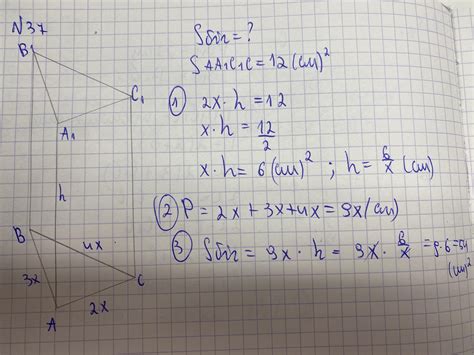 N37
B₁
C₁
A₁
h
B
4x
3x
C
2x
A
Sбіч = ?
SAA₁C₁C = 12 (см)²
① 2x · h = 12
x · h = 12/2
x · h = 6 (см)² ; h = 6/x (см)
② P = 2x + 3x + 4x = 9x (см)
③ Sбіч = 9x · h = 9x · 6/x = 9·6 = 54
(см)²